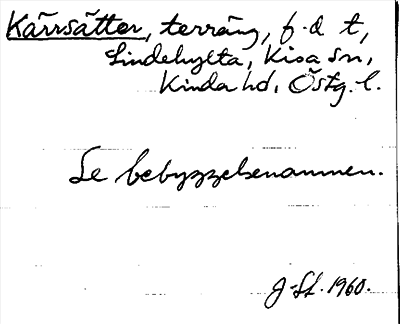 Kärrsätter, terräng, f.d t,
Lindehylta, Kisa sn,
Kinda hd, Östg. l.
Se bebyggelsenamnen.
J-St. 1960.